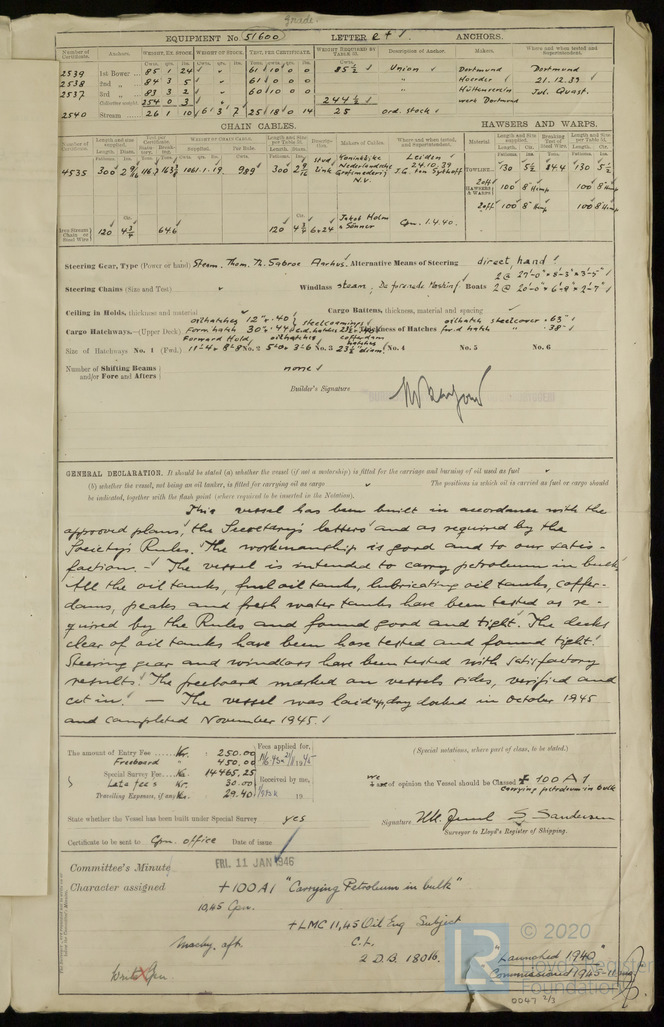 grade.
EQUIPMENT No. 51600 LETTER e † 1. ANCHORS.
Number of Certificate. Anchors. WEIGHT, EX. STOCK WEIGHT OF STOCK. TEST, PER CERTIFICATE. WEIGHT REQUIRED BY TABLE 31. Description of Anchor. Makers. Where and when tested, and Superintendent.
2539 1st Bower 85 1 24 61 10 0 0 85½ Union Dortmund Dortmund
2538 2nd „ 84 3 5 61 0 0 0 Hoerder 21.12.39
2537 3rd „ 83 3 2 60 10 0 0 Hüttenverein Jul. Quast.
Collective weight 254 0 3 244½ werk Dortmund
2540 Stream 26 1 10 6 3 7 25 18 0 14 25 ord. stock
CHAIN CABLES. HAWSERS AND WARPS.
4535 300 2 9/16 989 300 2 9/16 Stud Link Koninklijke Nederlandsche Grofsmederij N.V. Leiden 24.10.39 J.G. ten Sythoff
TOWLINE 130 5½ 24.4 130 5½
HAWSERS & WARPS 100 8" Hemp 100 8" Hemp
100 8" Hemp 100 8" Hemp
Iron Stream Chain or Steel Wire 120 4¾ 64.6 120 4¾ 6×24 Jakob Holm & Sønner Cpn. 1.4.40.
Steering Gear, Type (Power or hand) Steam. Thom. Th. Sabroe Aarhus. Alternative Means of Steering direct hand
Steering Chains (Size and Test) Windlass steam, De forenede Maskinf Boats 2 @ 27'-0" × 8'-3" × 3'-5"
2 @ 20'-0" × 6'-8" × 2'-7"
Ceiling in Holds, thickness and material Cargo Battens, thickness, material and spacing
Cargo Hatchways.—(Upper Deck) oilhatches 12" × .40 Forw. hatch 30" × .44 steelcoamings Thickness of Hatches oilhatch steelcover .63" forw.d hatch " .38"
Forward Hold, oilhatches cofferdam hatches
Size of Hatchways No. 1 (Fwd.) 11'-4 × 8'-8 No. 2 5'-0 × 3'-6 No. 3 23½" diam No. 4 No. 5 No. 6
Number of Shifting Beams and/or Fore and Afters none
Builder's Signature
GENERAL DECLARATION. It should be stated (a) whether the vessel (if not a motorship) is fitted for the carriage and burning of oil used as fuel
(b) whether the vessel, not being an oil tanker, is fitted for carrying oil as cargo The positions in which oil is carried as fuel or cargo should
be indicated, together with the flash point (where required to be inserted in the Notation).
This vessel has been built in accordance with the
approved plans, the Secretary's letters and as required by the
Society's Rules. The workmanship is good and to our satis-
faction. — The vessel is intended to carry petroleum in bulk
All the oil tanks, fuel oil tanks, lubricating oil tanks, coffer-
dams, peaks and fresh water tanks have been tested as re-
quired by the Rules and found good and tight. The decks
clear of oil tanks have been hose tested and found tight.
Steering gear and windlass have been tested with satisfactory
results. The freeboard marked on vessels sides, verified and
cut in. — The vessel was laid up, dry docked in October 1945
and completed November 1945.
The amount of Entry Fee Kr. 250.00 Fees applied for,
Freeboard " 450.00
Special Survey Fee Kr. 14465.25 Received by me,
Late fees Kr. 30.00
Travelling Expenses, if any Kr. 29.40 19
(Special notations, where part of class, to be stated.)
we are of opinion the Vessel should be Classed ✠ 100 A 1
carrying petroleum in bulk
State whether the Vessel has been built under Special Survey yes
Signature S. Sandersen
Surveyor to Lloyd's Register of Shipping.
Certificate to be sent to Cpn. office Date of issue
Committee's Minute FRI. 11 JAN 1946
Character assigned + 100 A1 "Carrying Petroleum in bulk"
10,45 Cpn.
+ LMC 11,45 Oil Eng Subject
Machy. aft. C.L.
2 D.B. 180 lb.
"Launched 1940"
Commissioned 1945-11
Write Cpn
© 2020
LR
Lloyd's Register
Foundation
0047 2/3